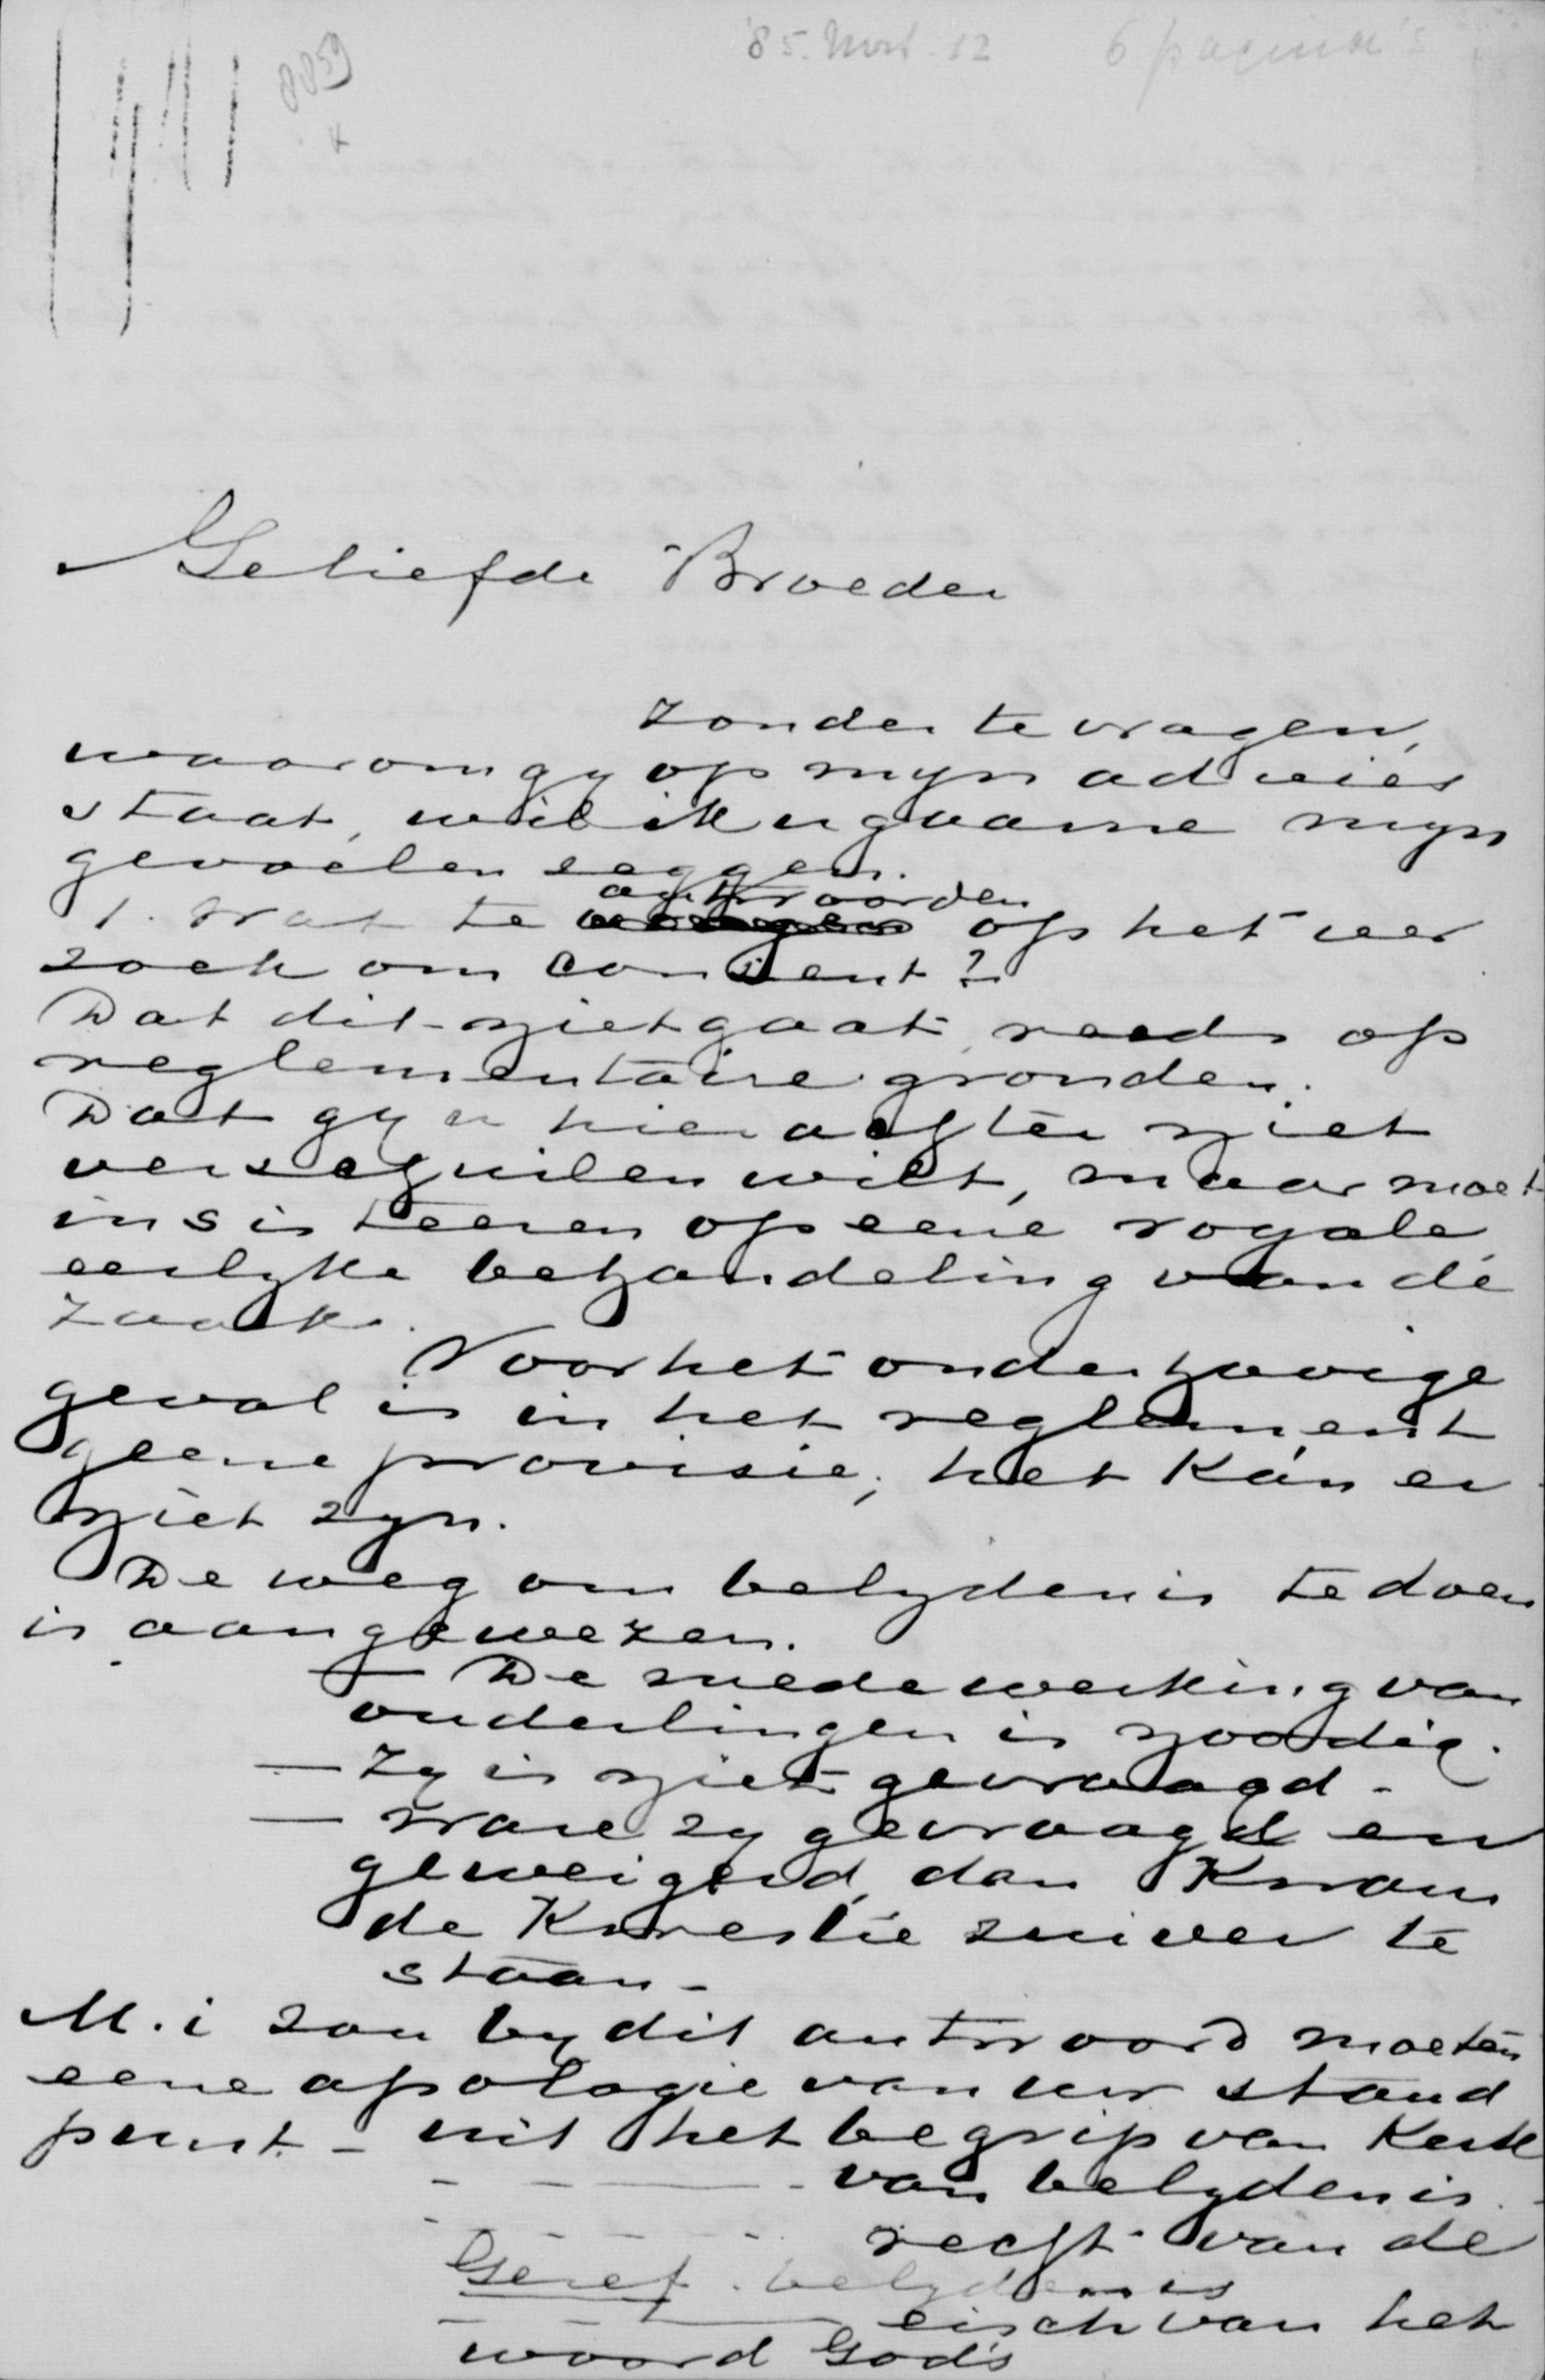 '85. Nov. 12 6 pagina's
0059
Geliefde Broeder
Zonder te vragen,
waarom gy op myn advies
staat, wil ik u gaarne myn
gevoelen zeggen.
antwoorden
1. Wat te op het ver
zoek om consent?
Dat dit niet gaat, reeds op
reglementaire gronden.
Dat gy u hier achter niet
verschuilen wilt, maar moet
insisteeren op eene royale
eerlyke behandeling van de
zaak.
Voor het onderhavige
geval is in het reglement
geene provisie; het kán er
niet zyn.
De weg om belydenis te doen
is aangewezen.
— De medewerking van
ouderlingen is noodig.
— Zy is niet gevraagd.
— Ware zy gevraagd en
geweigerd, dan kwam
de kwestie zuiver te
staan.
M. i zou by dit antwoord moeten
eene apologie van uw stand
punt - uit het begrip van Kerk
- — - van belydenis.
- - - - recht van de
Geref. belydenis
- - — eisch van het
woord Gods